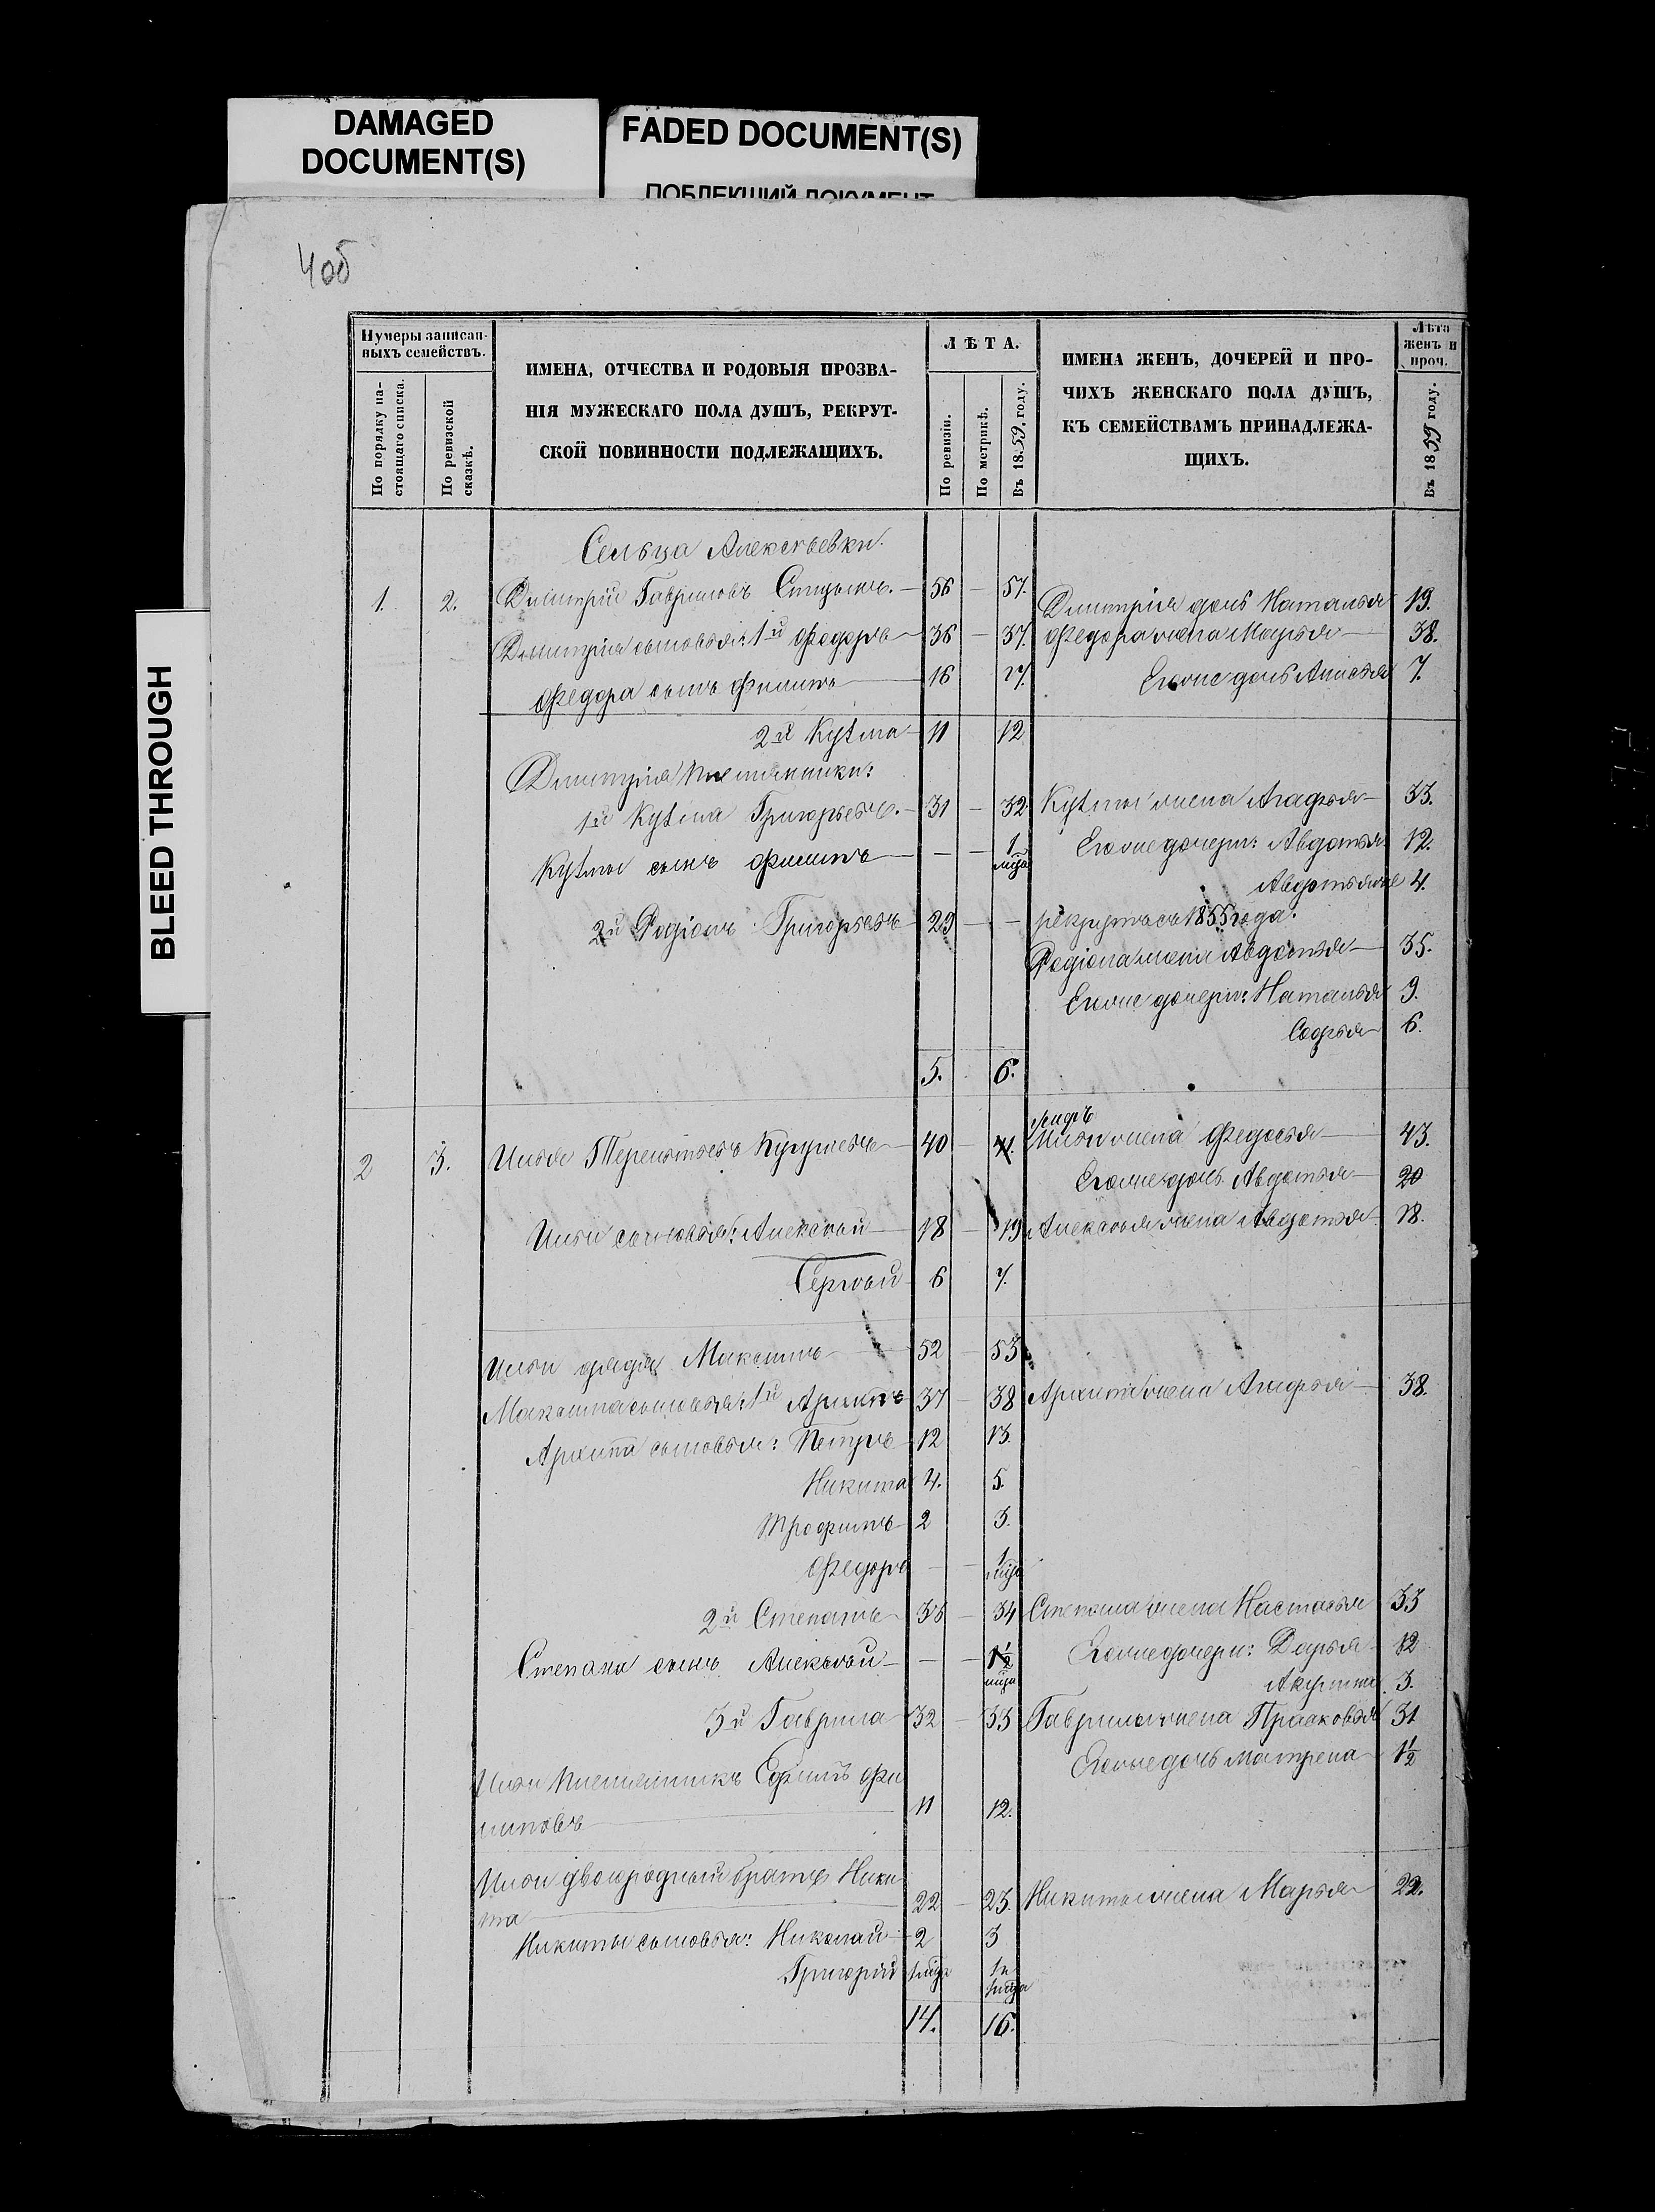 DAMAGED
DOCUMENT(S)
FADED DOCUMENT(S)
ПОБЛЕКШИЙ ДОКУМЕНТ
BLEED THROUGH
4об
Нумеры записан-
ныхъ семействъ.
По порядку на-
стоящаго списка.
По ревизской
сказкѣ.
ИМЕНА, ОТЧЕСТВА И РОДОВЫЯ ПРОЗВА-
НІЯ МУЖЕСКАГО ПОЛА ДУШЪ, РЕКРУТ-
СКОЙ ПОВИННОСТИ ПОДЛЕЖАЩИХЪ.
ЛѢТА.
По ревизіи.
По метрикѣ.
Въ 1859 году.
ИМЕНА ЖЕНЪ, ДОЧЕРЕЙ И ПРО-
ЧИХЪ ЖЕНСКАГО ПОЛА ДУШЪ,
КЪ СЕМЕЙСТВАМЪ ПРИНАДЛЕЖА-
ЩИХЪ.
Лѣта
женъ и
проч.
Въ 1859 году.
Сельца Алексѣевки.
1. 2. Дмитрій Гавриловъ 56 — 57. Дмитрія дочь Наталья 19.
Дмитрія сыновья: 1й Федоръ 36 — 37. Федора жена Марья 38.
Федора сынъ Филипъ 16 17. Егоже дочь Анисья 7.
2й Кузма 11 12
Дмитрія племянники:
1й Кузма Григорьевъ. 31 — 32 Кузмы жена Агафья 33.
Кузмы сынъ Филипъ — — 1 мѣся Егоже дочери: Авдотья 12.
Авдотья же 4.
2й Родіонъ Григорьевъ 29 — — рекрутъ съ 1855 года.
Родіона жена Авдотья 35.
Егоже дочери: Наталья 9.
Софья 6.
5. 6.
2 3. Илья Терентьевъ 40 — 41. Ильи жена Федосья 43.
Егоже дочь Авдотья 20
Ильи сыновья: Алексѣй 18 — 19 Алексѣя жена Авдотья 18.
Сергѣй 6 7.
Ильи дядя Максимъ 52 — 53
Максима сыновья: 1й Архипъ 37 — 38 Архипа жена Агафья 38.
Архипа сыновья: Петръ 12 13.
Никита 4. 5.
Трофимъ 2 3.
Федоръ — — 1 мѣся
2й Степанъ 33 — 34 Степана жена Настасья 33
Степана сынъ Алексѣй — — 1½ мѣся Егоже дочери: Дарья 12
Акулина 3.
3й Гаврила 32 — 33 Гаврилы жена Прасковья 31
Егоже дочь Матрена 1½
Ильи племянникъ Ефимъ Фи
липовъ 11 12.
Ильи двоюродный братъ Ники
та 22 — 23. Никиты жена Марья 22.
Никиты сыновья: Николай 2 3
Григорій
14. 16.